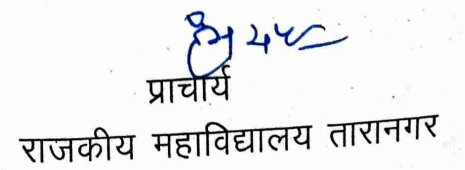 प्राचार्य
राजकीय महाविद्यालय तारानगर